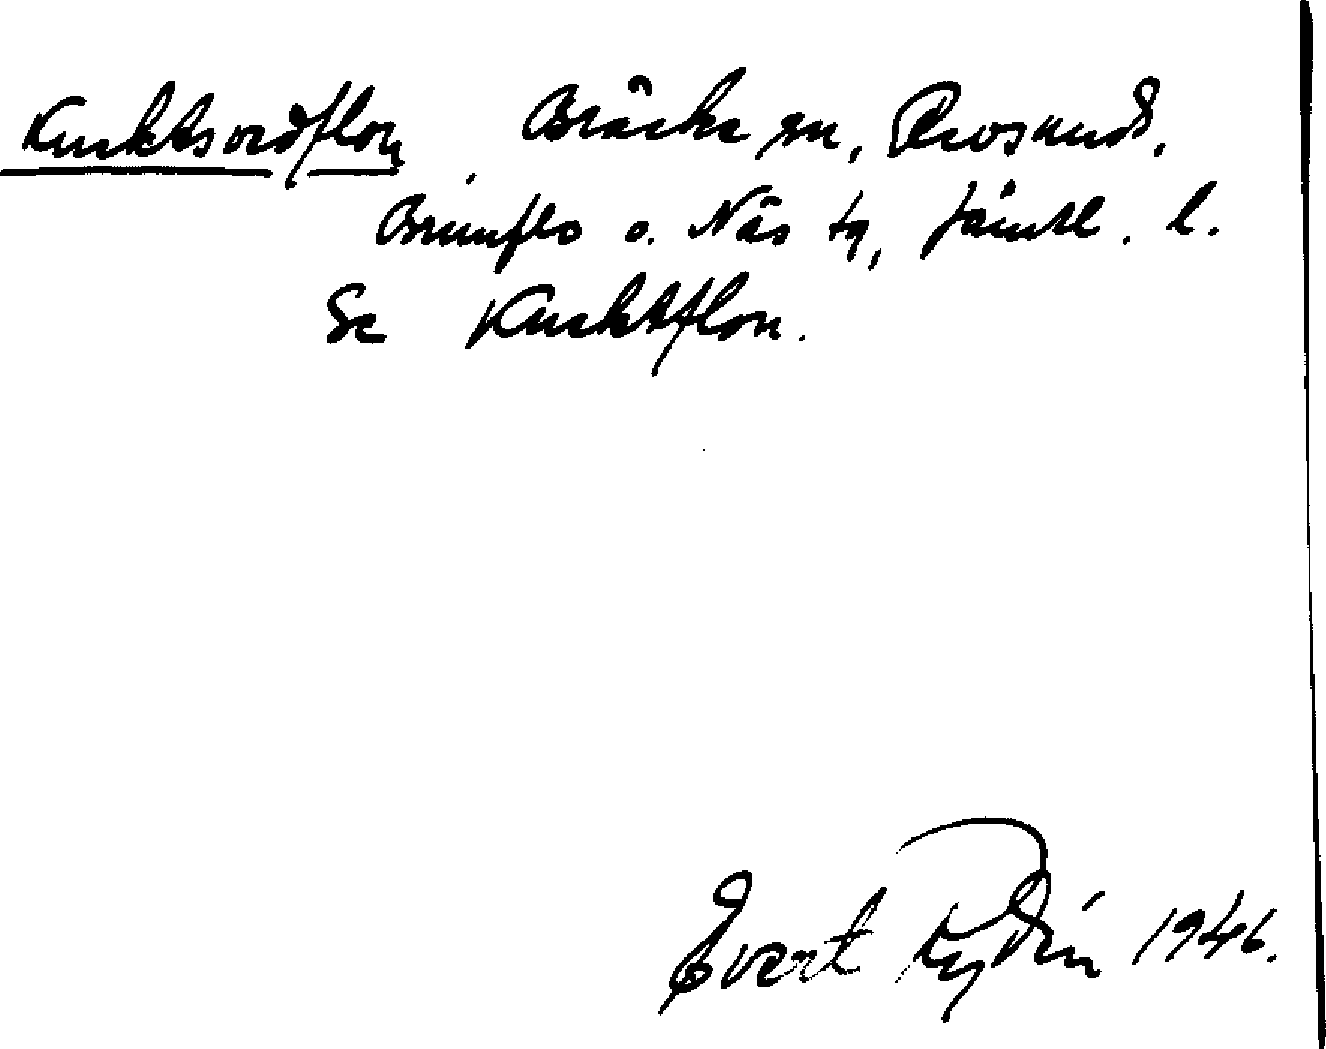 Knektsordflon Bräcke sn, Revsunds,
Brunflo o. Näs tg, Jämtl. l.
Se Knektflon.
Evert Rydin 1946.